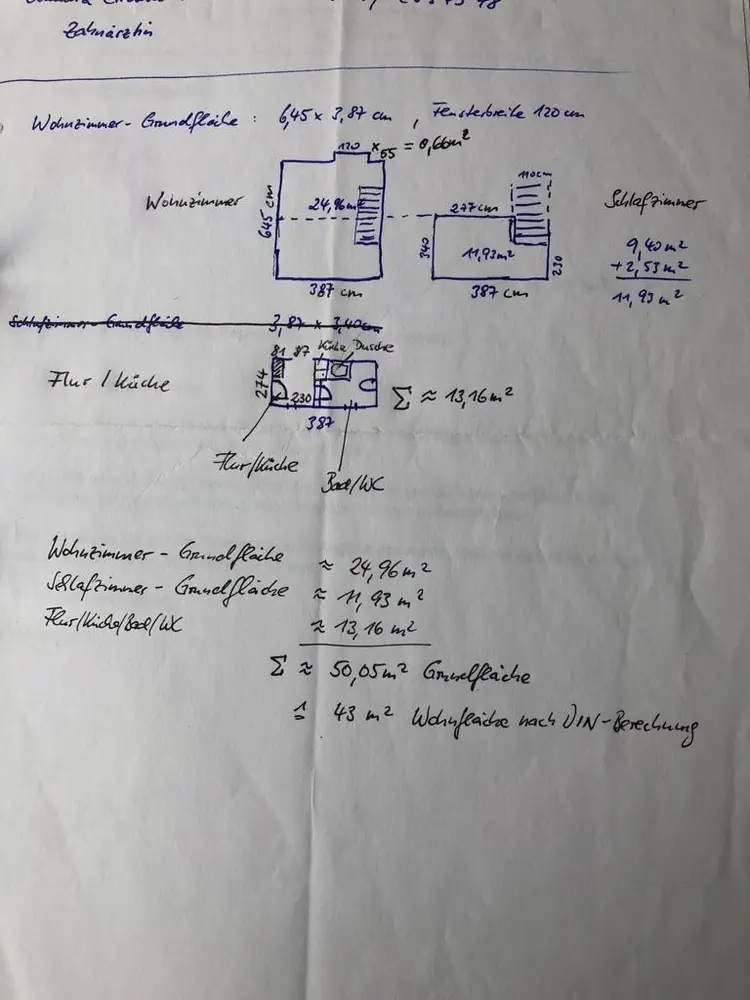 Zahnärztin
Wohnzimmer-Grundfläche : 6,45 x 3,87 cm , Fensterbreite 120 cm
120 x 55 = 0,66m²
Wohnzimmer
645 cm
24,96m²
387 cm
110cm
277cm
340
11,93m²
230
387 cm
Schlafzimmer
9,40m²
+2,53m²
11,93m²
Schlafzimmer-Grundfläche 3,87 x 3,40cm
Flur / Küche
81 87 Küche Dusche
274
230
387
Σ ≈ 13,16m²
Flur/Küche
Bad/WC
Wohnzimmer - Grundfläche ≈ 24,96m²
Schlafzimmer - Grundfläche ≈ 11,93 m²
Flur/Küche/Bad/WC ≈ 13,16 m²
Σ ≈ 50,05m² Grundfläche
≙ 43 m² Wohnfläche nach DIN-Berechnung